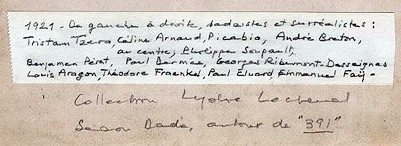 1921 - De gauche à droite, dadaïstes et surréalistes :
Tristan Tzara, Céline Arnaud, Picabia, André Breton,
au centre, Philippe Soupault,
Benjamen Péret, Paul Dermée, Georges Ribemont-Dessaignes
Louis Aragon, Théodore Fraenkel, Paul Eluard, Emmanuel Faÿ -
Collection Lydie
Saison Dada, autour de "391"